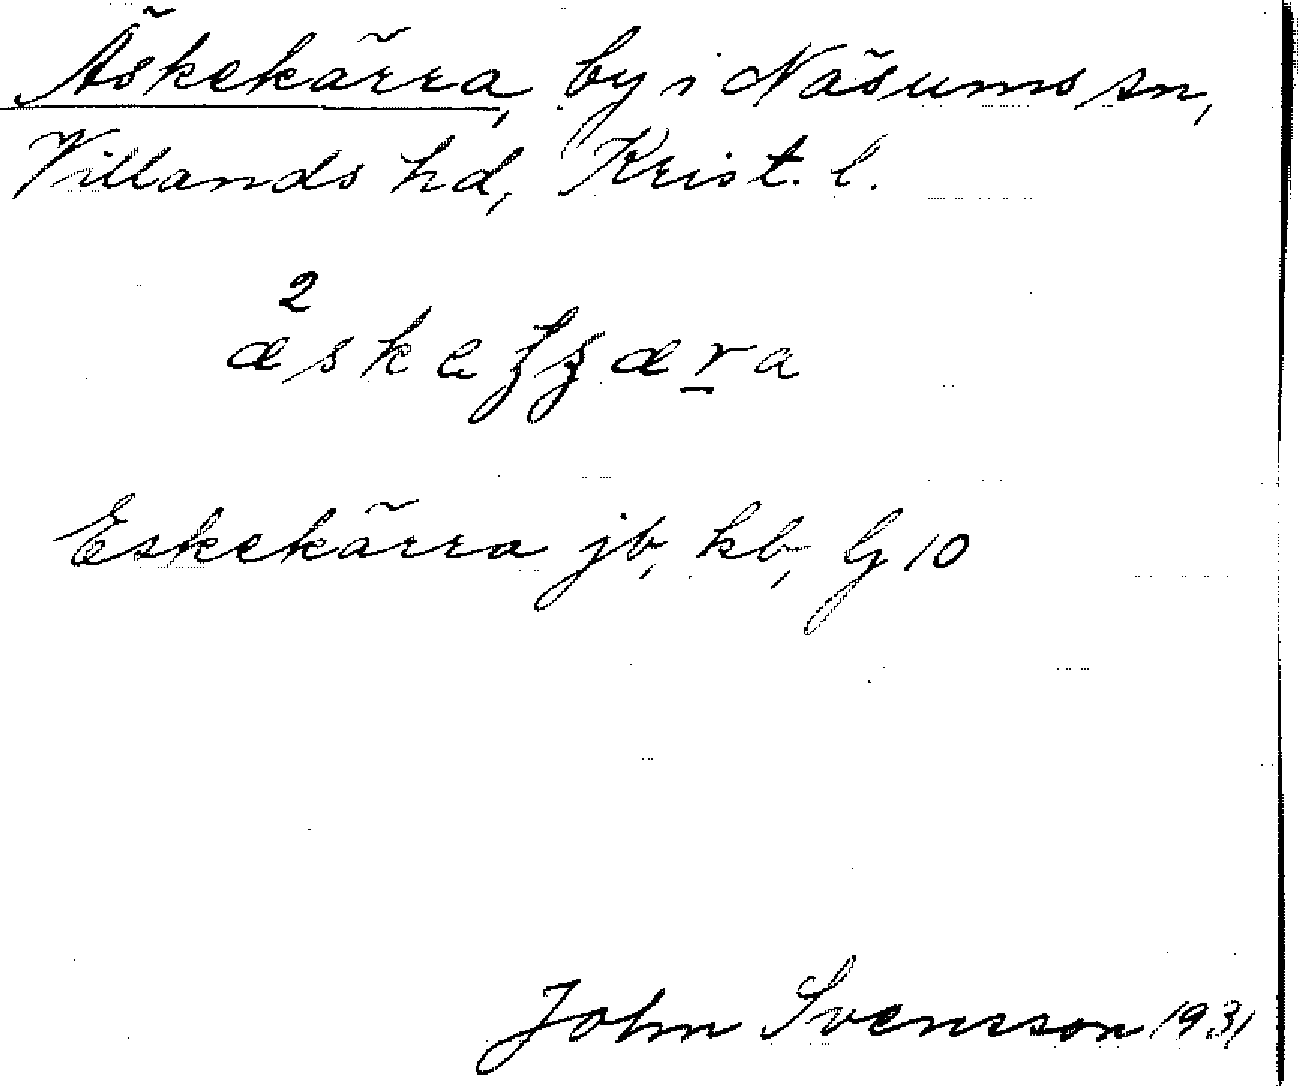 Äskekärra, by i Näsums sn,
Villands hd, Krist. l.
Eskekärra jb, kb, G 10
John Svensson 1931